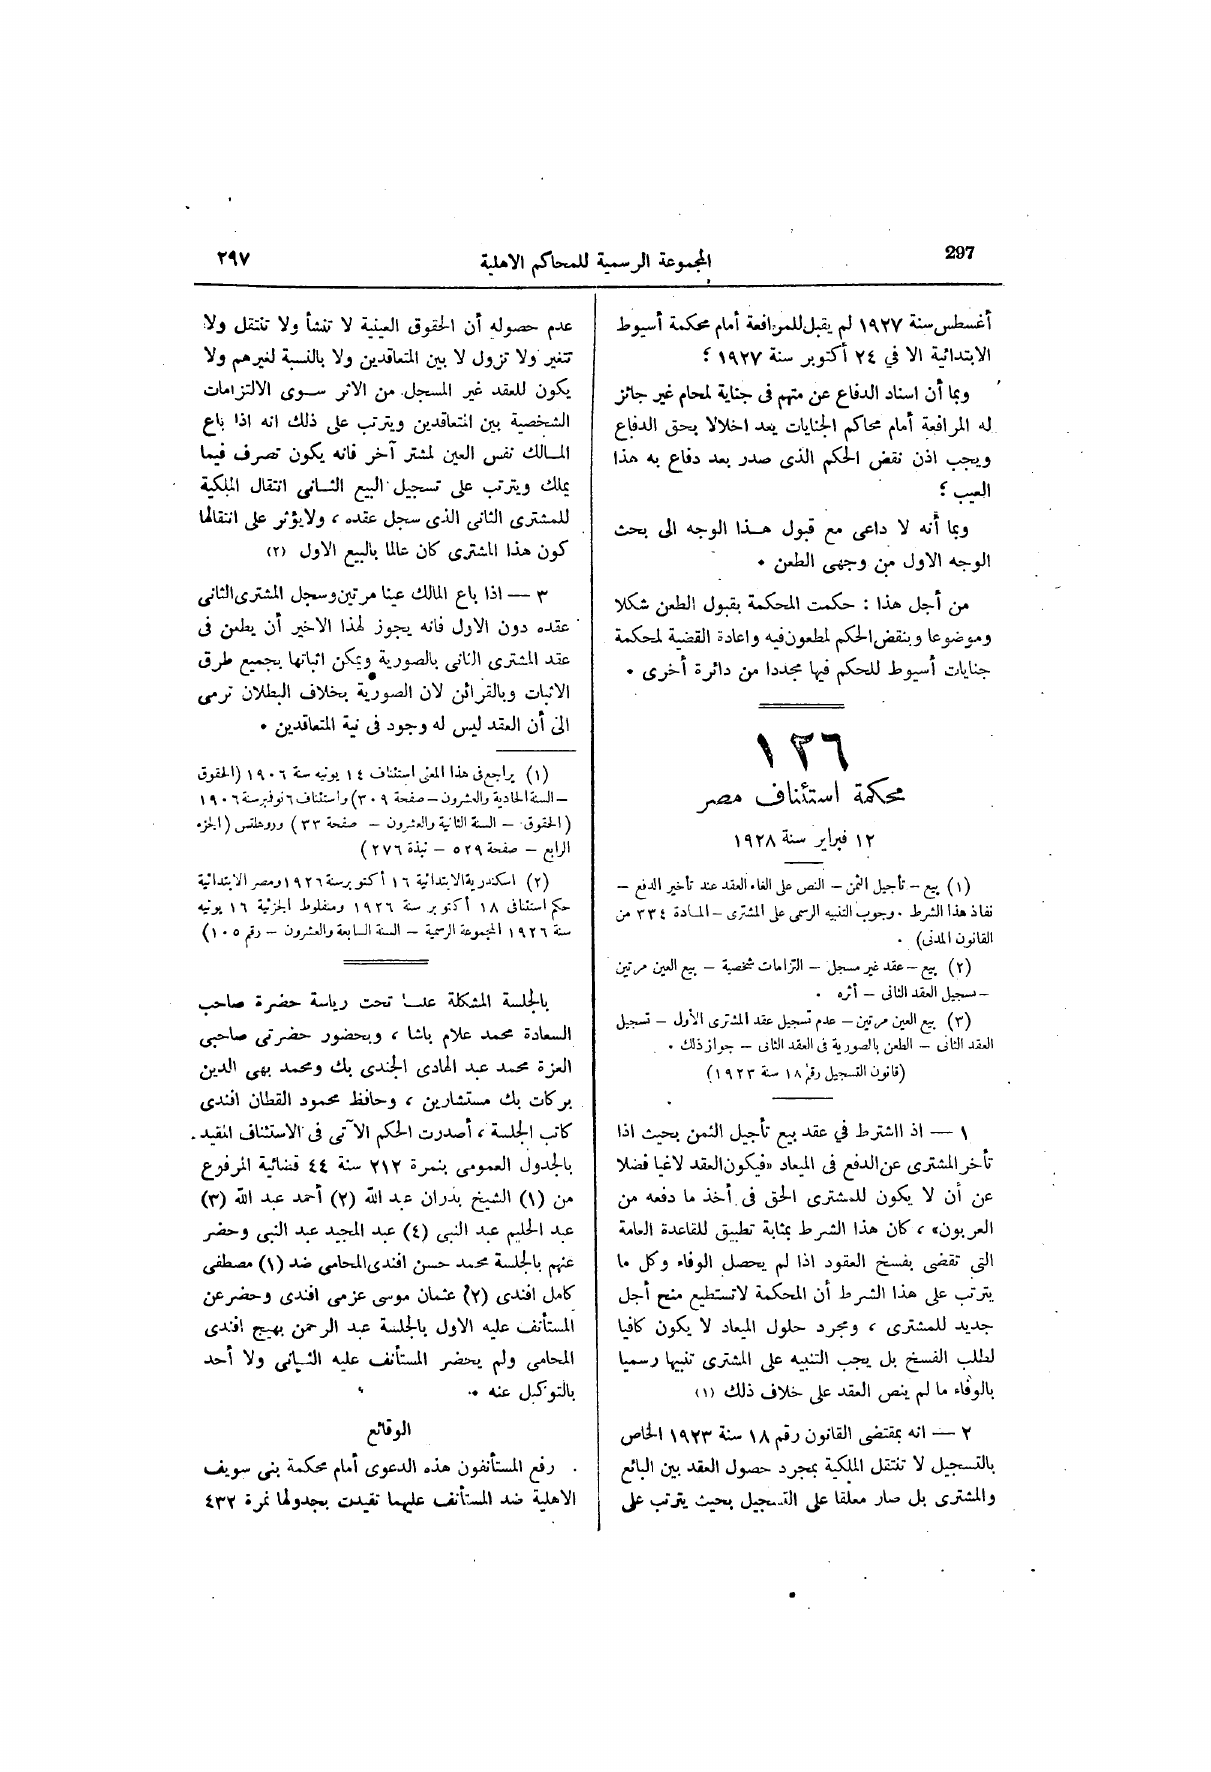 297
المجموعة الرسمية للمحاكم الاهلية
٢٩٧
أغسطس سنة ١٩٢٧ لم يقبل للمرافعة أمام محكمة أسيوط
الابتدائية الا في ٢٤ أكتوبر سنة ١٩٢٧ ؛
وبما أن اسناد الدفاع عن متهم فى جناية لمحام غير جائز
له المرافعة أمام محاكم الجنايات يعد اخلالا بحق الدفاع
ويجب اذن نقض الحكم الذى صدر بعد دفاع به هذا
العيب ؛
وبما أنه لا داعى مع قبول هذا الوجه الى بحث
الوجه الاول من وجهى الطعن .
من أجل هذا : حكمت المحكمة بقبول الطعن شكلا
وموضوعا وبنقض الحكم لمطعون فيه واعادة القضية لمحكمة
جنايات أسيوط للحكم فيها مجددا من دائرة أخرى .
١٣٦
محكمة استئناف مصر
١٢ فبراير سنة ١٩٢٨
(١) بيع – تأجيل الثمن – النص على الغاء العقد عند تأخير الدفع –
نفاذ هذا الشرط . وجوب التنبيه الرسمى على المشترى – المادة ٣٣٤ من
القانون المدنى) .
(٢) بيع – عقد غير مسجل – التزامات شخصية – بيع العين مرتين
– تسجيل العقد الثانى – أثره .
(٣) بيع العين مرتين – عدم تسجيل عقد المشترى الأول – تسجيل
العقد الثانى – الطعن بالصورية فى العقد الثانى – جواز ذلك .
(قانون التسجيل رقم ١٨ سنة ١٩٢٣)
١ — اذ ااشترط في عقد بيع تأجيل الثمن بحيث اذا
تأخر المشترى عن الدفع فى الميعاد «فيكون العقد لاغيا فضلا
عن أن لا يكون للمشترى الحق فى أخذ ما دفعه من
العربون» ، كان هذا الشرط بمثابة تطبيق للقاعدة العامة
التى تقضى بفسخ العقود اذا لم يحصل الوفاء وكل ما
يترتب على هذا الشرط أن المحكمة لا تستطيع منح أجل
جديد للمشترى ، ومجرد حلول الميعاد لا يكون كافيا
لطلب الفسخ بل يجب التنبيه على المشترى تنبيها رسميا
بالوفاء ما لم ينص العقد على خلاف ذلك (١)
٢ — انه بمقتضى القانون رقم ١٨ سنة ١٩٢٣ الخاص
بالتسجيل لا تنتقل الملكية بمجرد حصول العقد بين البائع
والمشترى بل صار معلقا على التسجيل بحيث يترتب على
عدم حصوله أن الحقوق العينية لا تنشأ ولا تنتقل ولا
تتغير ولا تزول لا بين المتعاقدين ولا بالنسبة لغيرهم ولا
يكون للعقد غير المسجل من الاثر سوى الالتزامات
الشخصية بين المتعاقدين ويترتب على ذلك انه اذا باع
المالك نفس العين لمشتر آخر فانه يكون تصرف فيما
يملك ويترتب على تسجيل البيع الثانى انتقال الملكية
للمشترى الثانى الذى سجل عقده ، ولا يؤثر على انتقالها
كون هذا المشترى كان عالما بالبيع الاول (٢)
٣ — اذا باع المالك عينا مرتين وسجل المشترى الثانى
عقده دون الاول فانه يجوز لهذا الاخير أن يطعن فى
عقد المشترى الثانى بالصورية ويمكن اثباتها بجميع طرق
الاثبات وبالقرائن لان الصورية بخلاف البطلان ترمى
الى أن العقد ليس له وجود فى نية المتعاقدين .
(١) يراجع فى هذا المعنى استئناف ١٤ يونيه سنة ١٩٠٦ (الحقوق
– السنة الحادية والعشرون – صفحة ٣٠٩) واستئناف ٦ نوفمبر سنة ١٩٠٦
(الحقوق – السنة الثانية والعشرون – صفحة ٣٣) ودوهلتس (الجزء
الرابع – صفحة ٥٢٩ – نبذة ٢٧٦)
(٢) اسكندرية الابتدائية ١٦ أكتوبر سنة ١٩٢٦ ومصر الابتدائية
حكم استئنافى ١٨ أكتوبر سنة ١٩٢٦ ومنفلوط الجزئية ١٦ يونيه
سنة ١٩٢٦ (المجموعة الرسمية – السنة السابعة والعشرون – رقم ١٠٥)
بالجلسة المشكلة علنا تحت رياسة حضرة صاحب
السعادة محمد علام باشا ، وبحضور حضرتى صاحبى
العزة محمد عبد الهادى الجندى بك ومحمد بهى الدين
بركات بك مستشارين ، وحافظ محمود القطان افندى
كاتب الجلسة ، أصدرت الحكم الآتى فى الاستئناف المقيد
بالجدول العمومى بنمرة ٢١٢ سنة ٤٤ قضائية المرفوع
من (١) الشيخ بدران عبد الله (٢) أحمد عبد الله (٣)
عبد الحليم عبد النبى (٤) عبد المجيد عبد النبى وحضر
عنهم بالجلسة محمد حسن افندى المحامى ضد (١) مصطفى
كامل افندى (٢) عثمان موسى عزمى افندى وحضر عن
المستأنف عليه الاول بالجلسة عبد الرحمن بهيج افندى
المحامى ولم يحضر المستأنف عليه الثانى ولا أحد
بالتوكيل عنه .
الوقائع
رفع المستأنفون هذه الدعوى أمام محكمة بنى سويف
الاهلية ضد المستأنف عليهما تقيدت بجدولها نمرة ٤٣٢